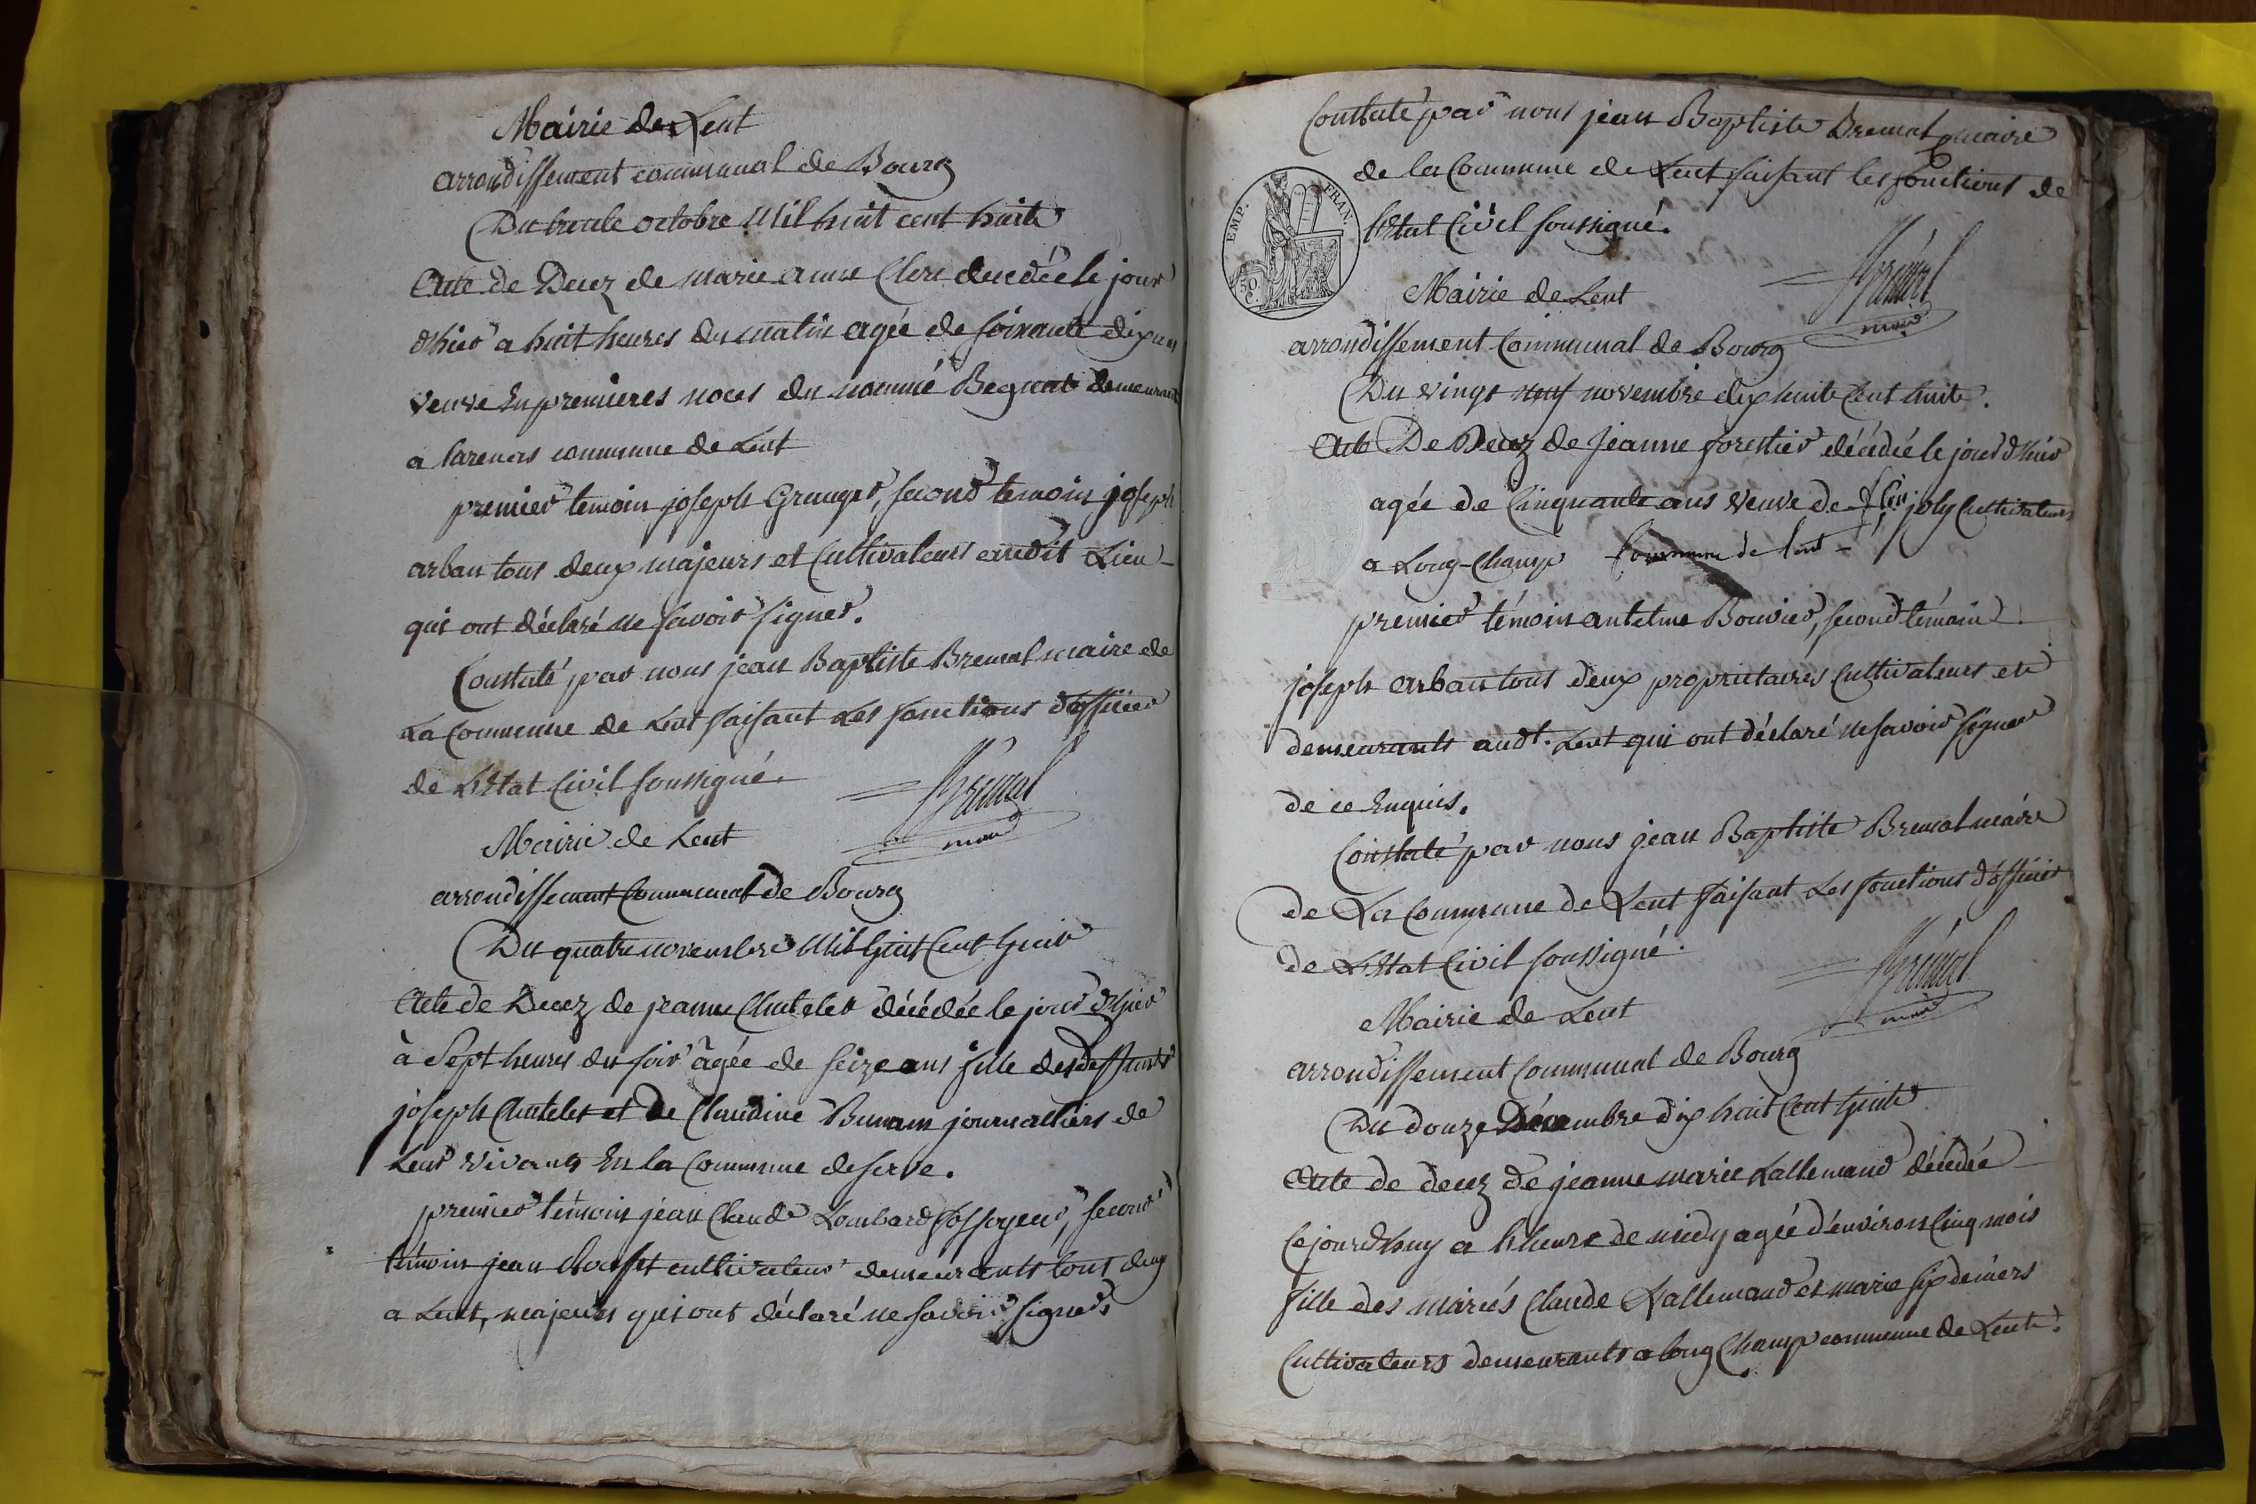 Mairie de Lent
arrondissement communal de Bourg
Du trente octobre Mil huit cent huit
Acte de Decez de marie anne Clerc decedée le jour
d'hier a huit heures du matin agée de soixante dix ans
veuve En premieres noces du nommé Begnat demeurant
a commune de Lent
premier temoin joseph Granger, second temoin joseph
arban tous deux majeurs et Cultivateurs Lieu
qui ont déclaré ne savoir signer.
Constaté par nous jean Baptiste Bremal maire de
La Commune de Lent faisant Les fonctions d'officier
de L'Etat Civil soussigné.
Brémal
maire
Mairie de Lent
arrondissement Communal de Bourg
Du quatre novembre Mil huit Cent huit
Acte de Decez de jeanne Chatelet décédée le jour d'hier
à Sept heures du soir âgée de seize ans fille des deffunts
joseph Chatelet et de Claudine journalliers de
Leur vivants En la Commune de Servе.
premier témoin jean Claude Lombard fossoyeur, second
témoin jean cultivateur demeurants tous deux
a Lent, majeurs qui ont déclaré ne savoir signer
Constaté par nous jean Baptiste Bremal maire
de la Commune de Lent faisant les fonctions de
l'Etat Civil soussigné.
EMP. FRAN.
50 C.
Brémal
maire
Mairie de Lent
arrondissement Communal de Bourg
Du vingt neuf novembre dix huit Cent huit.
Acte De Decez de Jeanne forestier décédée le jour d'hier
agée de Cinquante ans veuve de joly Cultivateurs
a Long-Champ Commune de lent
premier témoin antelme Bouvier, second témoin
joseph arban tous deux proprietaires Cultivateurs et
demeurants audt. Lent qui ont déclaré ne savoir signer
de ce Enquis.
Constaté par nous jean Baptiste Bremal maire
de La Commune de Lent faisant Les fonctions d'officier
de L'Etat Civil soussigné.
Brémal
maire
Mairie de Lent
arrondissement Communal de Bourg
Du douze Décembre dix huit Cent huit
Acte de decez de jeanne marie Lallemand décédée
Cejourd'huy a l'heure de midy agée d'environ Cinq mois
fille des mariés Claude Lallemand et marie sixdeniers
Cultivateurs demeurants a long Champ commune de Lent.